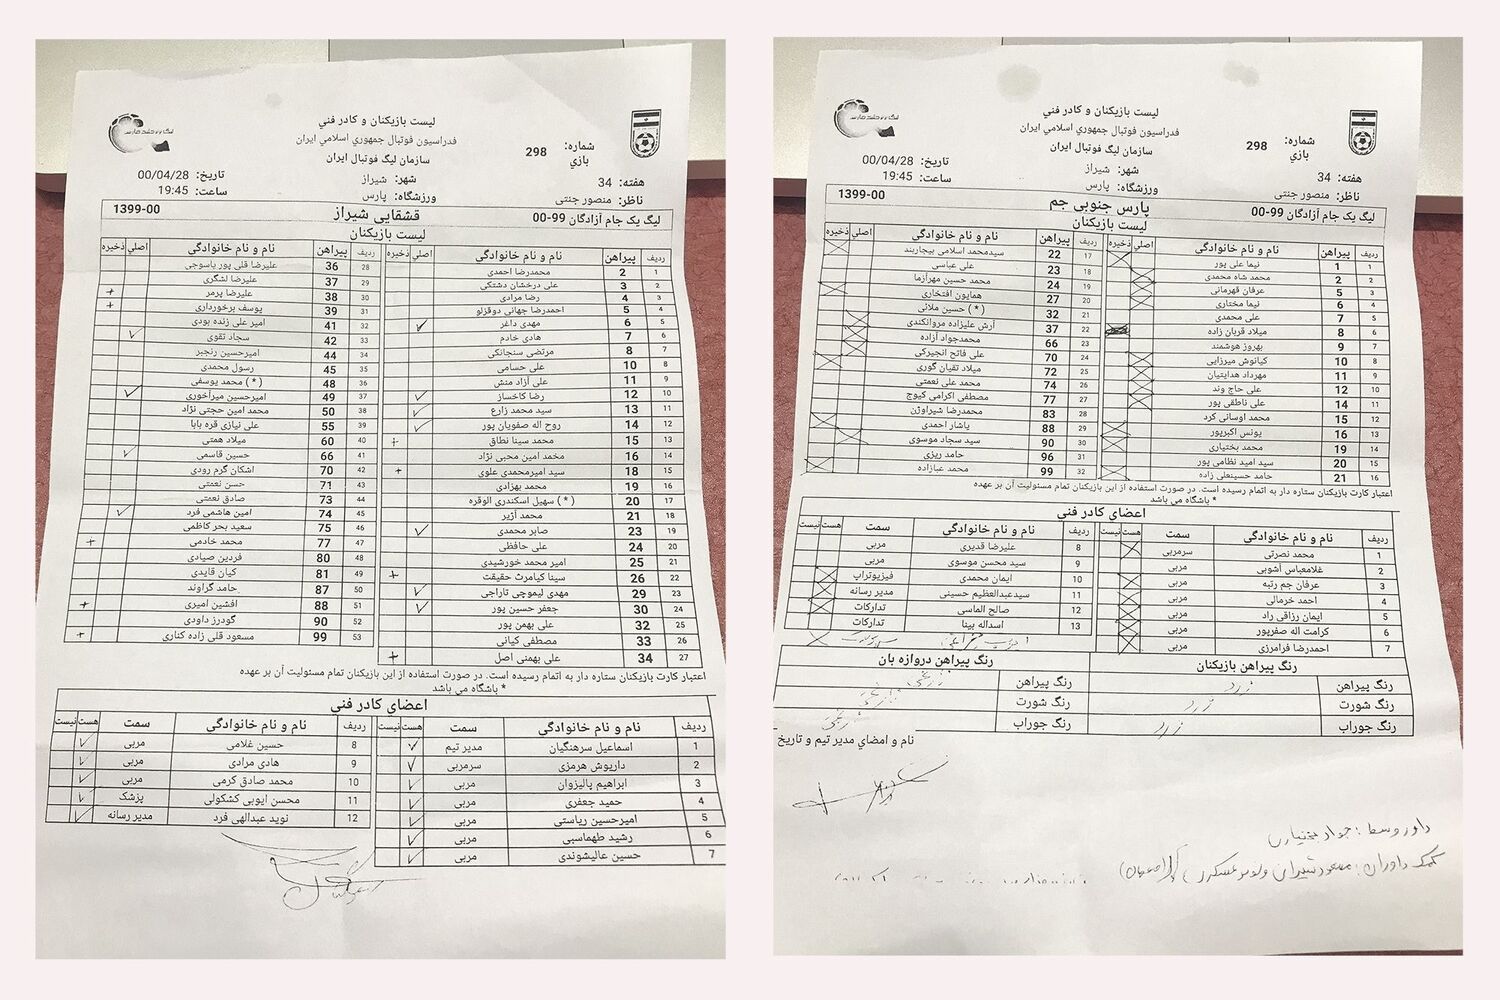 لیست بازیکنان و کادر فني
فدراسیون فوتبال جمهوري اسلامي ایران
سازمان لیگ فوتبال ایران
شماره بازي: 298
تاریخ: 00/04/28
ساعت: 19:45
شهر: شیراز
ورزشگاه: پارس
هفته: 34
ناظر: منصور جنتی
لیگ یک جام آزادگان 99-00
قشقایی شیراز
1399-00
لیست بازیکنان
ردیف پیراهن نام و نام خانوادگی اصلي ذخیره
1 2 محمدرضا احمدی
2 3 علی درخشان دشتکی
3 4 رضا مرادی
4 5 احمدرضا جهانی دوقزلو
5 6 مهدی داغر ✓
6 7 هادی خادم
7 8 مرتضی سنجانکی
8 10 علی حسامی
9 11 علی آزاد منش
10 12 رضا کاخساز ✓
11 13 سید محمد زارع ✓
12 14 روح اله صفویان پور ✓
13 15 محمد سینا نطاق +
14 16 محمد امین محبی نژاد
15 18 سید امیرمحمدی علوی +
16 19 محمد بهزادی
17 20 ( * ) سهیل اسکندری الوقره
18 21 محمد آژیر
19 23 صابر محمدی ✓
20 24 علی حافظی
21 25 امیر محمد خورشیدی
22 26 سینا کیامرث حقیقت +
23 29 مهدی لیموچی تاراجی ✓
24 30 جعفر حسین پور ✓
25 32 علی بهمن پور
26 33 مصطفی کیانی
27 34 علی بهمنی اصل +
ردیف پیراهن نام و نام خانوادگی اصلي ذخیره
28 36 علیرضا قلی پور یاسوجی
29 37 علیرضا لشگری
30 38 علیرضا پرمر +
31 39 یوسف برخورداری +
32 41 امیر علی زنده بودی
33 42 سجاد تقوی ✓
34 44 امیرحسین رنجبر
35 45 رسول محمدی
36 48 ( * ) محمد یوسفی
37 49 امیرحسین میرآخوری ✓
38 50 محمد امین حجتی نژاد
39 55 علی نیازی قره بابا
40 60 میلاد همتی
41 66 حسین قاسمی ✓
42 70 اشکان گرم رودی
43 71 حسن نعمتی
44 73 صادق نعمتی
45 74 امین هاشمی فرد ✓
46 75 سعید بحر کاظمی
47 77 محمد خادمی +
48 80 فردین صیادی
49 81 کیان قایدی
50 87 حامد گراوند
51 88 افشین امیری +
52 90 گودرز داودی
53 99 مسعود قلی زاده کناری +
اعتبار کارت بازیکنان ستاره دار به اتمام رسیده است. در صورت استفاده از این بازیکنان تمام مسئولیت آن بر عهده
* باشگاه می باشد
اعضای کادر فنی
ردیف نام و نام خانوادگی سمت هست نیست
1 اسماعیل سرهنگیان مدیر تیم ✓
2 داریوش هرمزی سرمربی ✓
3 ابراهیم پالیزوان مربی ✓
4 حمید جعفری مربی ✓
5 امیرحسین ریاستی مربی ✓
6 رشید طهماسبی مربی ✓
7 حسین عالیشوندی مربی ✓
ردیف نام و نام خانوادگی سمت هست نیست
8 حسین غلامی مربی ✓
9 هادی مرادی مربی ✓
10 محمد صادق کرمی مربی ✓
11 محسن ایوبی کشکولی پزشک ✓
12 نوید عبدالهی فرد مدیر رسانه ✓
لیست بازیکنان و کادر فني
فدراسیون فوتبال جمهوري اسلامي ایران
سازمان لیگ فوتبال ایران
شماره بازي: 298
تاریخ: 00/04/28
ساعت: 19:45
شهر: شیراز
ورزشگاه: پارس
هفته: 34
ناظر: منصور جنتی
لیگ یک جام آزادگان 99-00
پارس جنوبی جم
1399-00
لیست بازیکنان
ردیف پیراهن نام و نام خانوادگی اصلي ذخیره
1 1 نیما علی پور
2 2 محمد شاه محمدی
3 5 عرفان قهرمانی
4 6 نیما مختاری
5 7 علی محمدی
6 8 میلاد قربان زاده
7 9 بهروز هوشمند
8 10 کیانوش میرزایی
9 11 مهرداد هدایتیان
10 12 علی حاج وند
11 14 علی ناطقی پور
12 15 محمد اوسانی کرد
13 16 یونس اکبرپور
14 19 محمد بختیاری
15 20 سید امید نظامی پور
16 21 حامد حسینعلی زاده
ردیف پیراهن نام و نام خانوادگی اصلي ذخیره
17 22 سیدمحمد اسلامی بیجاربند
18 23 علی عباسی
19 24 محمد حسین مهرآزما
20 27 همایون افتخاری
21 32 ( * ) حسین ملائی
22 37 آرش علیزاده مروانکندی
23 66 محمدجواد آزاده
24 70 علی فاتح انجیرکی
25 72 میلاد تقیان گوری
26 74 محمد علی نعمتی
27 77 مصطفی اکرامی کیوج
28 83 محمدرضا شیراوژن
29 88 یاشار احمدی
30 90 سید سجاد موسوی
31 96 حامد ریزی
32 99 محمد عبازاده
اعتبار کارت بازیکنان ستاره دار به اتمام رسیده است. در صورت استفاده از این بازیکنان تمام مسئولیت آن بر عهده
* باشگاه می باشد
اعضای کادر فنی
ردیف نام و نام خانوادگی سمت هست نیست
1 محمد نصرتی سرمربی
2 غلامعباس آشوبی مربی
3 عرفان جم رتبه مربی
4 احمد خرمالی مربی
5 ایمان رزاقی راد مربی
6 کرامت اله صفرپور مربی
7 احمدرضا فرامرزی مربی
ردیف نام و نام خانوادگی سمت هست نیست
8 علیرضا قدیری مربی
9 سید محسن موسوی مربی
10 ایمان محمدی فیزیوتراپ
11 سیدعبدالعظیم حسینی مدیر رسانه
12 صالح الماسی تدارکات
13 اسداله بینا تدارکات
رنگ پیراهن بازیکنان رنگ پیراهن دروازه بان
رنگ پیراهن زرد رنگ پیراهن نارنجی
رنگ شورت زرد رنگ شورت نارنجی
رنگ جوراب زرد رنگ جوراب نارنجی
نام و امضاي مدیر تیم و تاریخ
داور وسط : جواد بختیاری
کمک داوران : مسعود شیرانی و